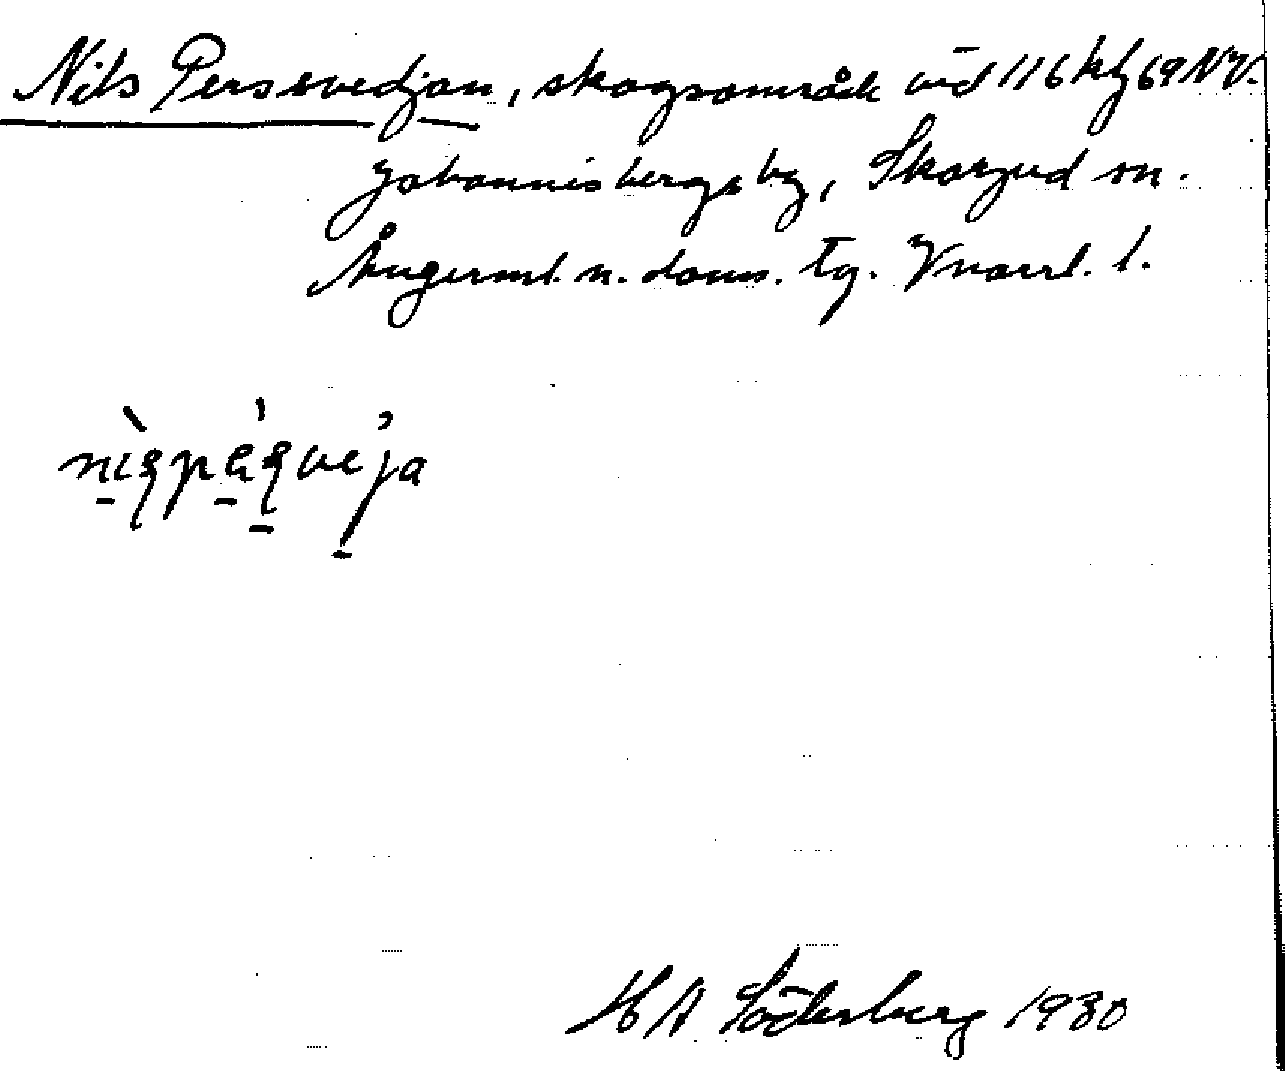 Nils Perssvedjan, skogsområde vid 116 kf 69 NV.
Johannisbergs by, Skorped sn.
Ångerml. n. doms. tg. Vnorrl. l.
H A Söderberg 1930